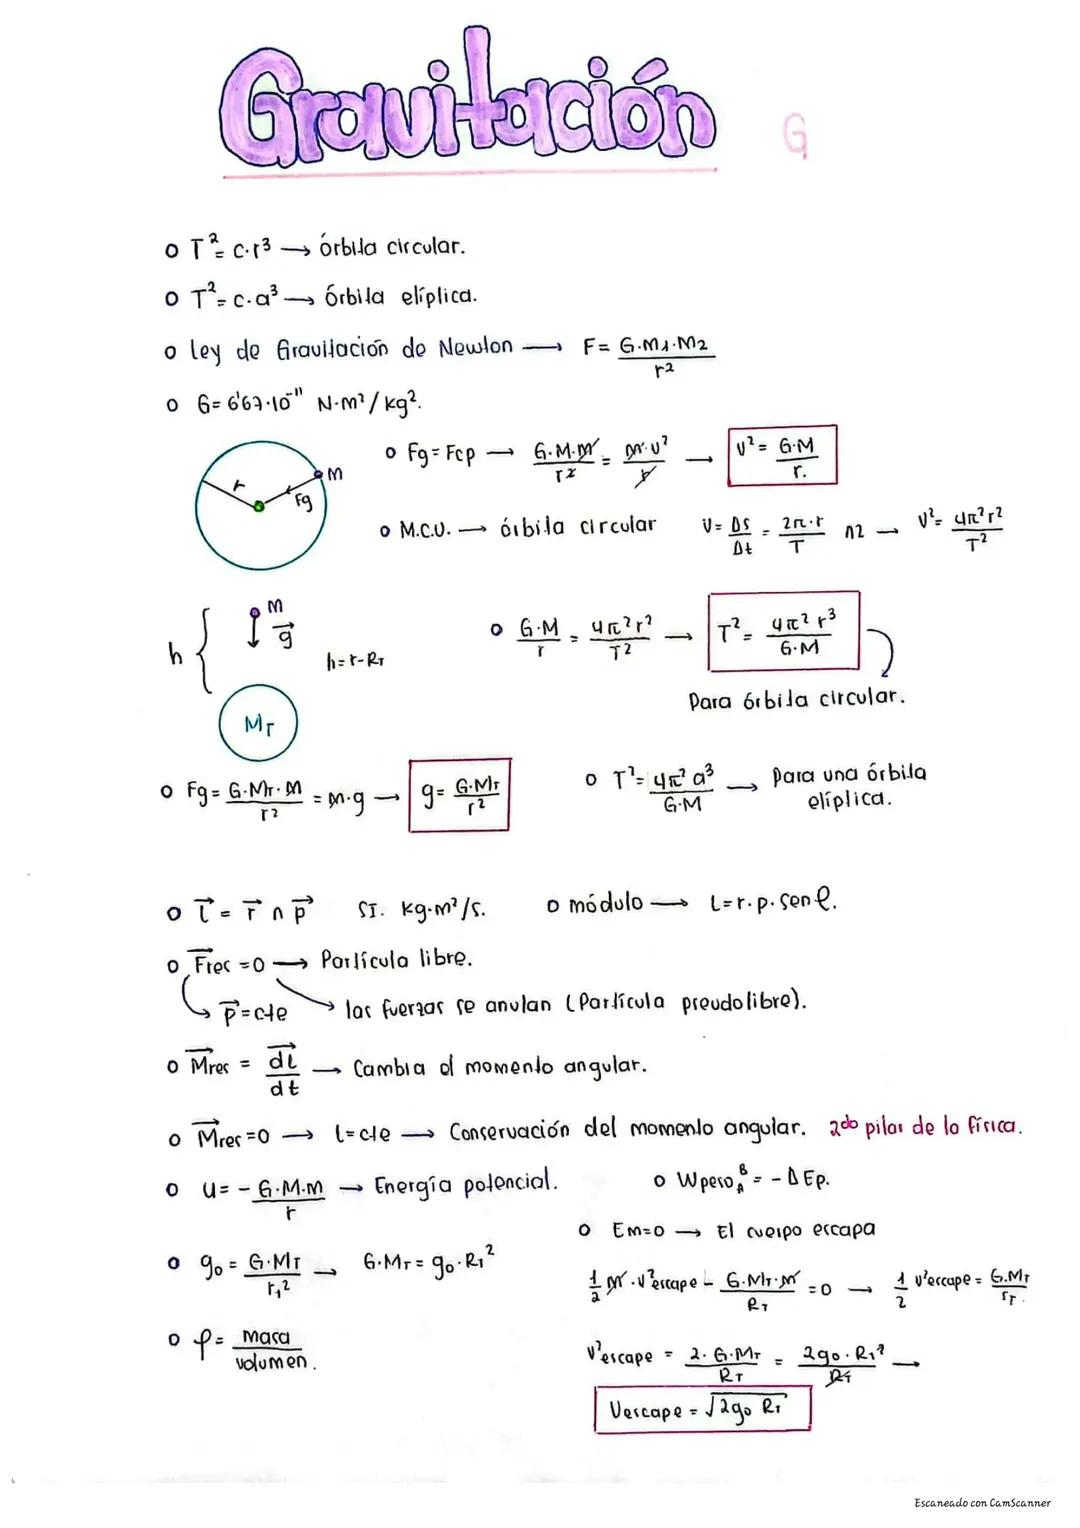 Gravitación G
o T² = c·r³ → órbita circular.
o T² = c·a³ → órbita elíptica.
o Ley de Gravitación de Newton → F = G·M1·M2 / r²
o G = 6'67·10⁻¹¹ N·m²/kg².
r Fg m
o Fg = Fcp → G·M·m / r² = m·v² / r → v² = G·M / r.
o M.C.U. → órbita circular v = Δs / Δt = 2π·r / T ∧2 → v² = 4π² r² / T²
h m g⃗ h = r - RT
MT
o G·M / r = 4π² r² / T² → T² = 4π² r³ / G·M
Para órbita circular.
o Fg = G·MT·m / r² = m·g → g = G·MT / r²
o T² = 4π² a³ / G·M → Para una órbita
elíptica.
o L⃗ = r⃗ ∧ p⃗ SI. kg·m²/s. o módulo → L = r·p·sen φ.
o F⃗res = 0 → Partícula libre.
p⃗ = cte → las fuerzas se anulan (Partícula pseudolibre).
o M⃗res = dL⃗ / dt → Cambia el momento angular.
o M⃗res = 0 → L = cte → Conservación del momento angular. 2do pilar de la física.
o U = - G·M·m / r → Energía potencial.
o Wpeso A B = - ΔEp.
o Em = 0 → El cuerpo escapa
o g₀ = G·MT / rT² → G·MT = g₀·RT²
1/2 m·v²escape - G·MT·m / RT = 0 → 1/2 v²escape = G·MT / rT.
o ρ = masa / volumen.
v²escape = 2·G·MT / RT = 2g₀·RT² / RT →
Vescape = √2g₀ RT
Escaneado con CamScanner